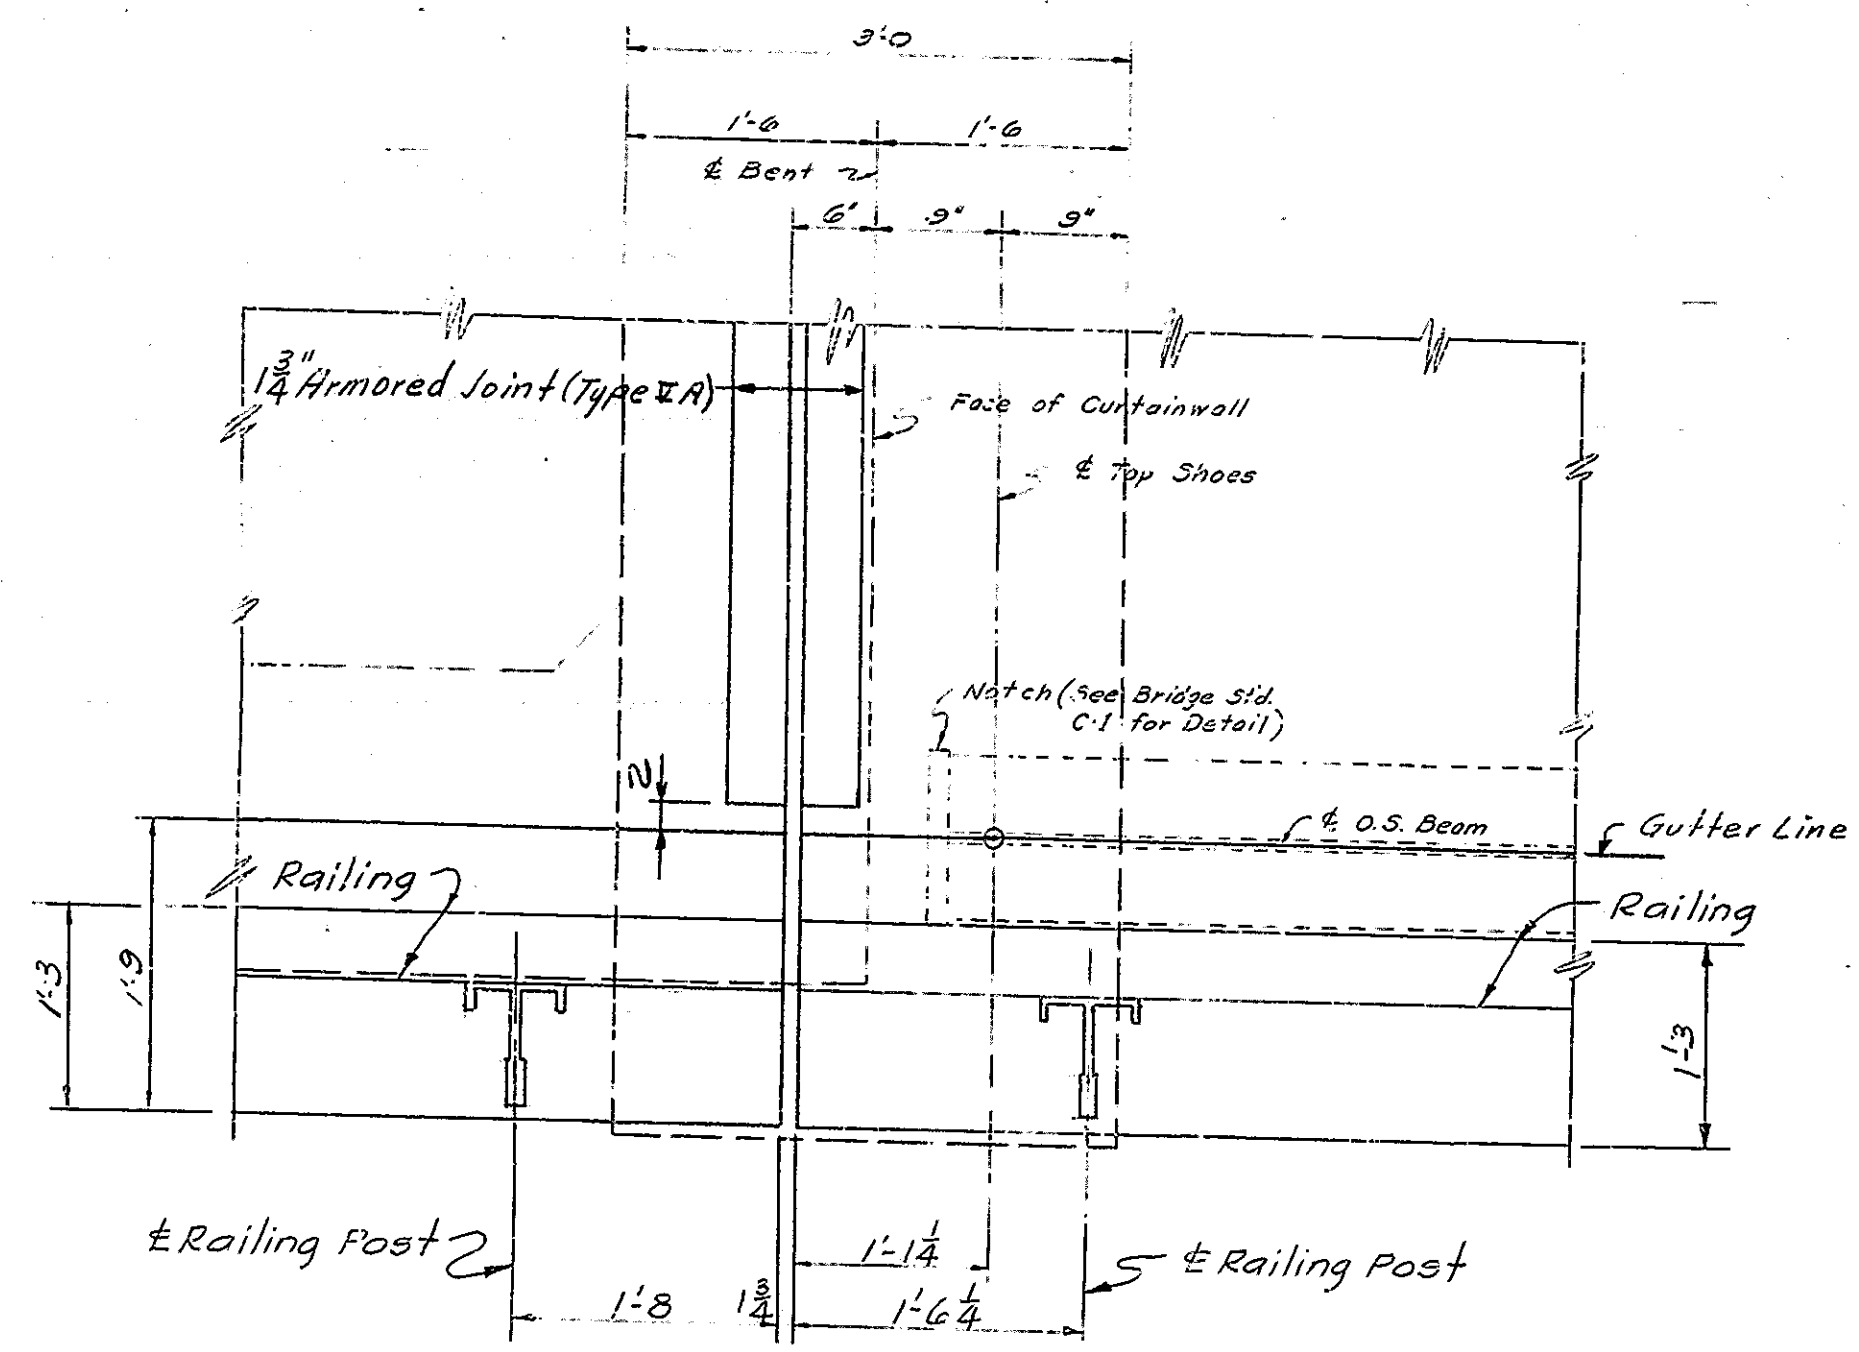 3'-0
1'-6
1'-6
℄ Bent
6"
9"
9"
1 3/4" Armored Joint (Type V A)
Face of Curtainwall
℄ Top Shoes
Notch (See Bridge Std.
C-1 for Detail)
2
℄ O.S. Beam
Gutter Line
Railing
Railing
1'-3
1'-9
1'-3
℄ Railing Post
1'-1 1/4
℄ Railing Post
1'-8
1 3/4
1'-6 1/4